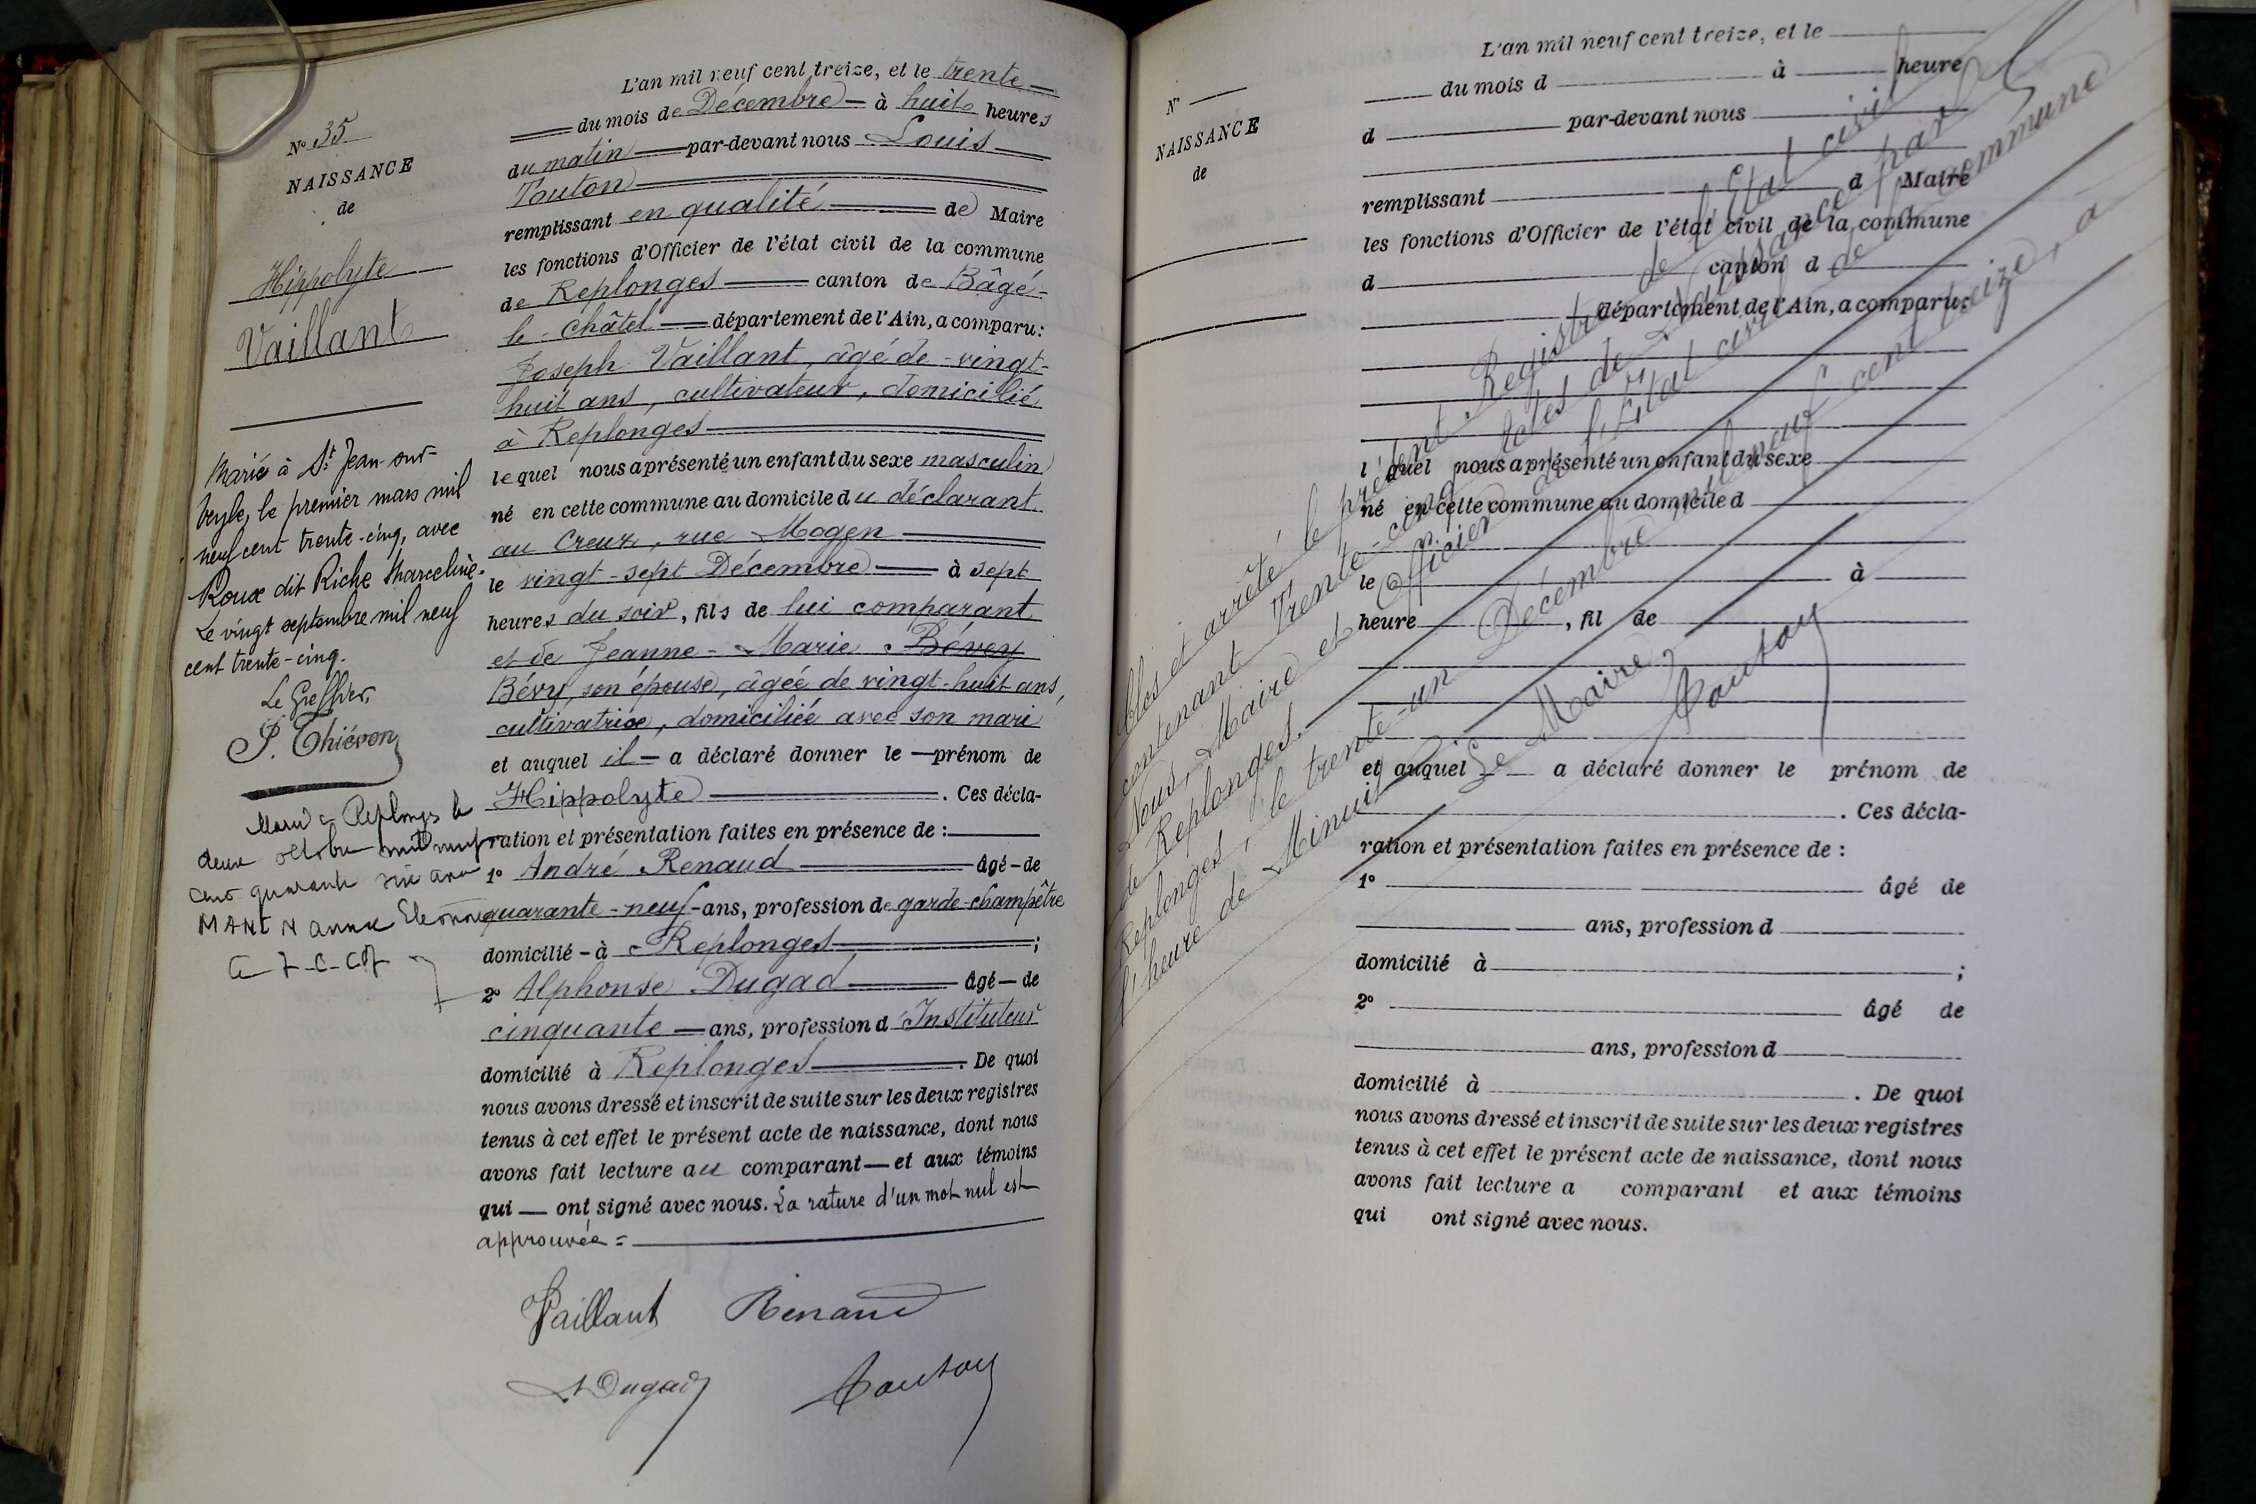 N° 35
NAISSANCE
de
Hippolyte
Vaillant
Marié à St Jean-sur-
Veyle, le premier mars mil
neuf cent trente-cinq, avec
Roux dit Riche Marceline.
Le vingt septembre mil neuf
cent trente-cinq.
Le Greffier,
P. Thiévon
Marié à Replonges le
deux octobre mil neuf
cent quarante six avec
MANTIN Anne Eléonore
L'an mil neuf cent treize, et le trente
du mois de Décembre à huit heures
du matin par-devant nous Louis
Touton
remplissant en qualité de Maire
les fonctions d'Officier de l'état civil de la commune
de Replonges canton de Bâgé-
le-Châtel département de l'Ain, a comparu:
Joseph Vaillant, âgé de vingt-
huit ans, cultivateur, domicilié
à Replonges
lequel nous a présenté un enfant du sexe masculin
né en cette commune au domicile du déclarant
au Creux, rue Mogen
le vingt-sept Décembre à sept
heures du soir, fils de lui comparant
et de Jeanne-Marie Bévey
Bévy, son épouse, âgée de vingt-huit ans,
cultivatrice, domiciliée avec son mari
et auquel il a déclaré donner le prénom de
Hippolyte. Ces décla-
ration et présentation faites en présence de :
1° André Renaud âgé de
quarante-neuf ans, profession de garde-champêtre
domicilié à Replonges;
2° Alphonse Dugad âgé de
cinquante ans, profession d'Instituteur
domicilié à Replonges. De quoi
nous avons dressé et inscrit de suite sur les deux registres
tenus à cet effet le présent acte de naissance, dont nous
avons fait lecture au comparant et aux témoins
qui ont signé avec nous. La rature d'un mot nul est
approuvée =
Vaillant Renaud
A Dugad Touton
N°
NAISSANCE
de
L'an mil neuf cent treize, et le
du mois d à heure
d par-devant nous
remplissant d Maire
les fonctions d'Officier de l'état civil de la commune
d canton d
département de l'Ain, a comparu:
l quel nous a présenté un enfant du sexe
né en cette commune au domicile d
le à
heure , fil de
et auquel a déclaré donner le prénom de
. Ces décla-
ration et présentation faites en présence de :
1° âgé de
ans, profession d
domicilié à ;
2° âgé de
ans, profession d
domicilié à . De quoi
nous avons dressé et inscrit de suite sur les deux registres
tenus à cet effet le présent acte de naissance, dont nous
avons fait lecture a comparant et aux témoins
qui ont signé avec nous.
Clos et arrêté le présent Registre de l'Etat civil
contenant Trente-cinq actes de Naissance par
Nous, Maire et Officier de l'Etat civil de la commune
de Replonges.
Replonges, le trente-un Décembre mil neuf cent treize, à
l'heure de Minuit
Le Maire,
Touton